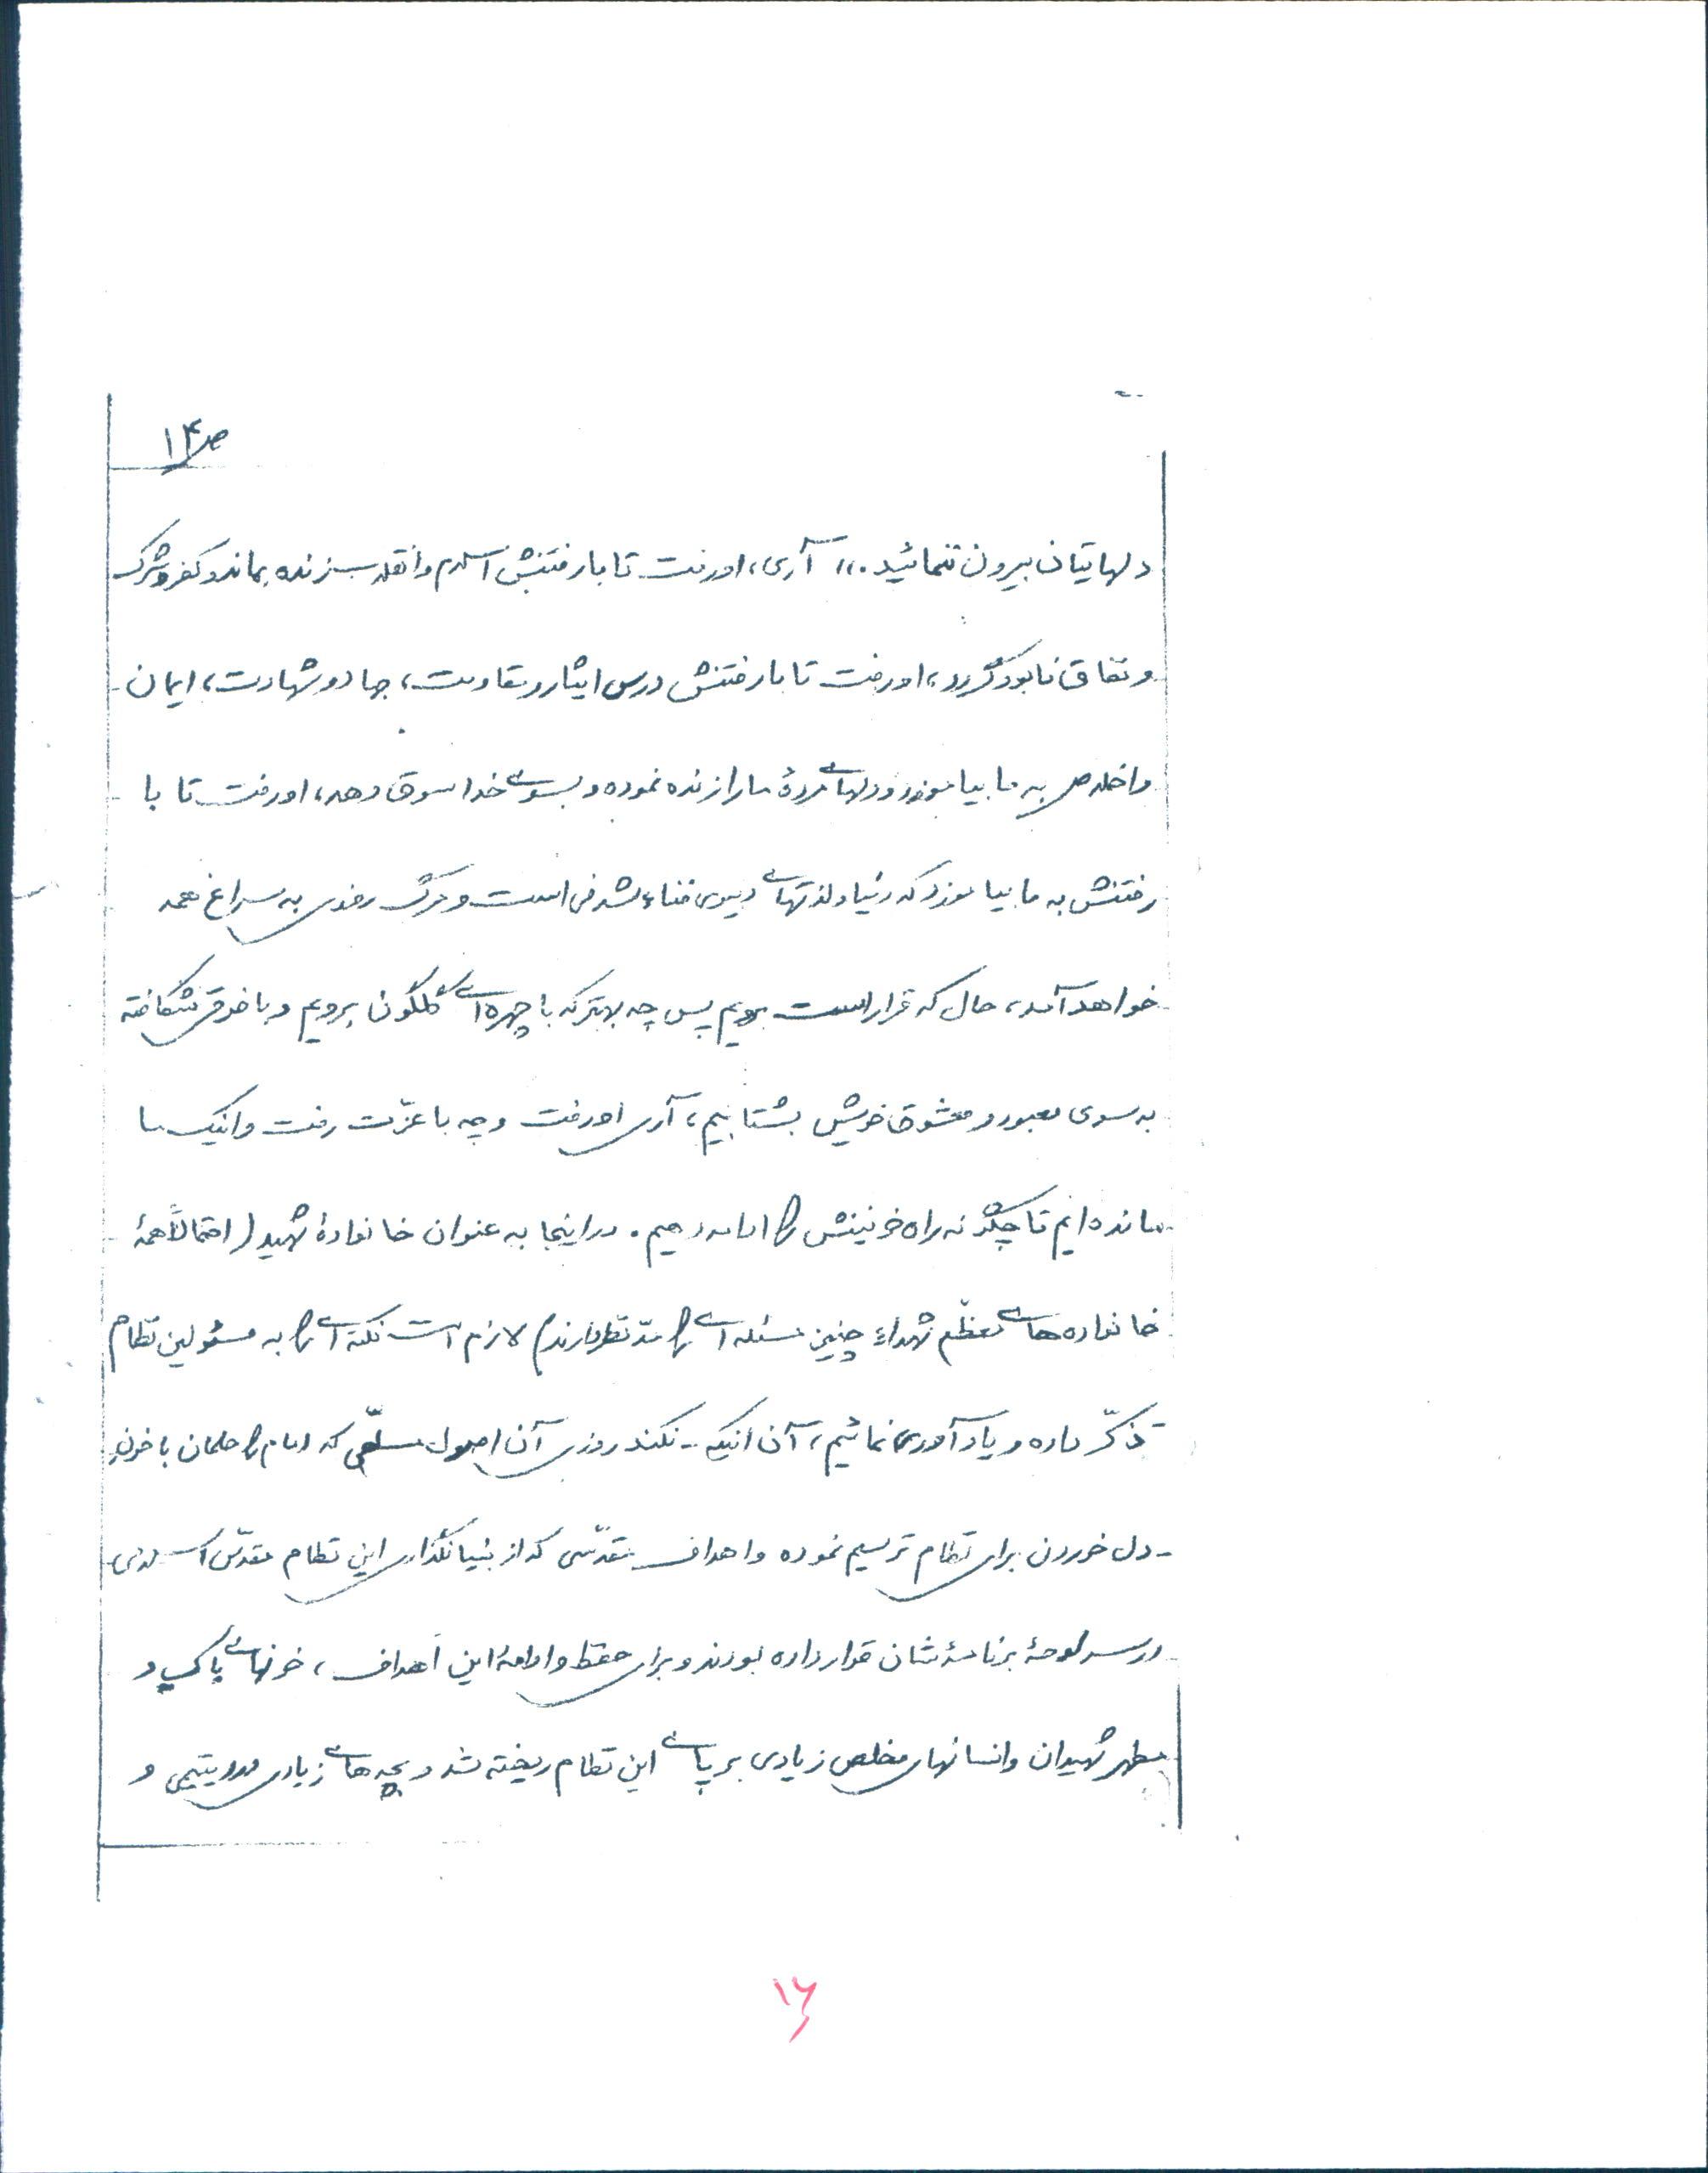 ص ۱۴
دلهایتان بیرون ننمائید.،، آری، او رفت تا با رفتنش اسلام و انقلاب زنده بماند و کفر و شرک
و نفاق نابود گردد، او رفت تا با رفتنش درس ایثار و مقاومت، جهاد و شهادت، ایمان
و اخلاص به ما بیاموزد و دلهای مردهٔ ما را زنده نموده و بسوی خدا سوق دهد، او رفت تا با
رفتنش به ما بیاموزد که دنیا و لذتهای دنیوی فناء شدنی است و مرگ روزی به سراغ همه
خواهد آمد، حال که قرار است برویم پس چه بهتر که با چهره‌ای گلگون برویم و با فرق شکافته
به سوی معبود و معشوق خویش بشتابیم، آری او رفت و چه با عزّت رفت و اینک ما
مانده‌ایم تا چگونه راه خونینش را ادامه دهیم. در اینجا به عنوان خانوادهٔ شهید (احتمالاً همهٔ
خانواده‌های معظّم شهداء چنین مسئله‌ای را مدّ نظر دارند) لازم است نکته‌ای را به مسئولین نظام
تذکّر داده و یادآوری نمائیم، آن اینکه - نکند روزی آن اصول مسلّمی که امام راحلمان با خونِ
دل خوردن برای نظام ترسیم نموده و اهداف مقدّسی که از بنیانگذاری این نظام مقدّس اسلامی
در سرلوحهٔ برنامهٔ شان قرار داده بودند و برای حفظ و ادامهٔ این اهداف، خونهای پاک و
مطهر شهیدان و انسانهای مخلص زیادی بر پای این نظام ریخته شد و بچه‌های زیادی یتیمی و
۱۶